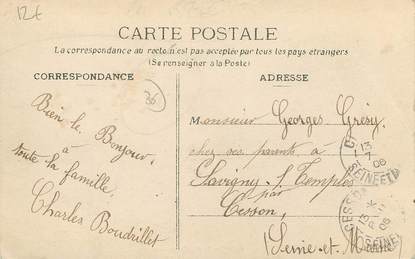 12€
CARTE POSTALE
La correspondance au recto n'est pas acceptée par tous les pays étrangers
(Se renseigner à la Poste)
CORRESPONDANCE
ADRESSE
30
Bien le Bonjour
à
toute la famille
Charles Boudrillet
Monsieur Georges Grésy
chez ses parents à
Savigny-s/-Temple
par
Cesson,
(Seine-et-Marne)
13
7
06
CESSON
06